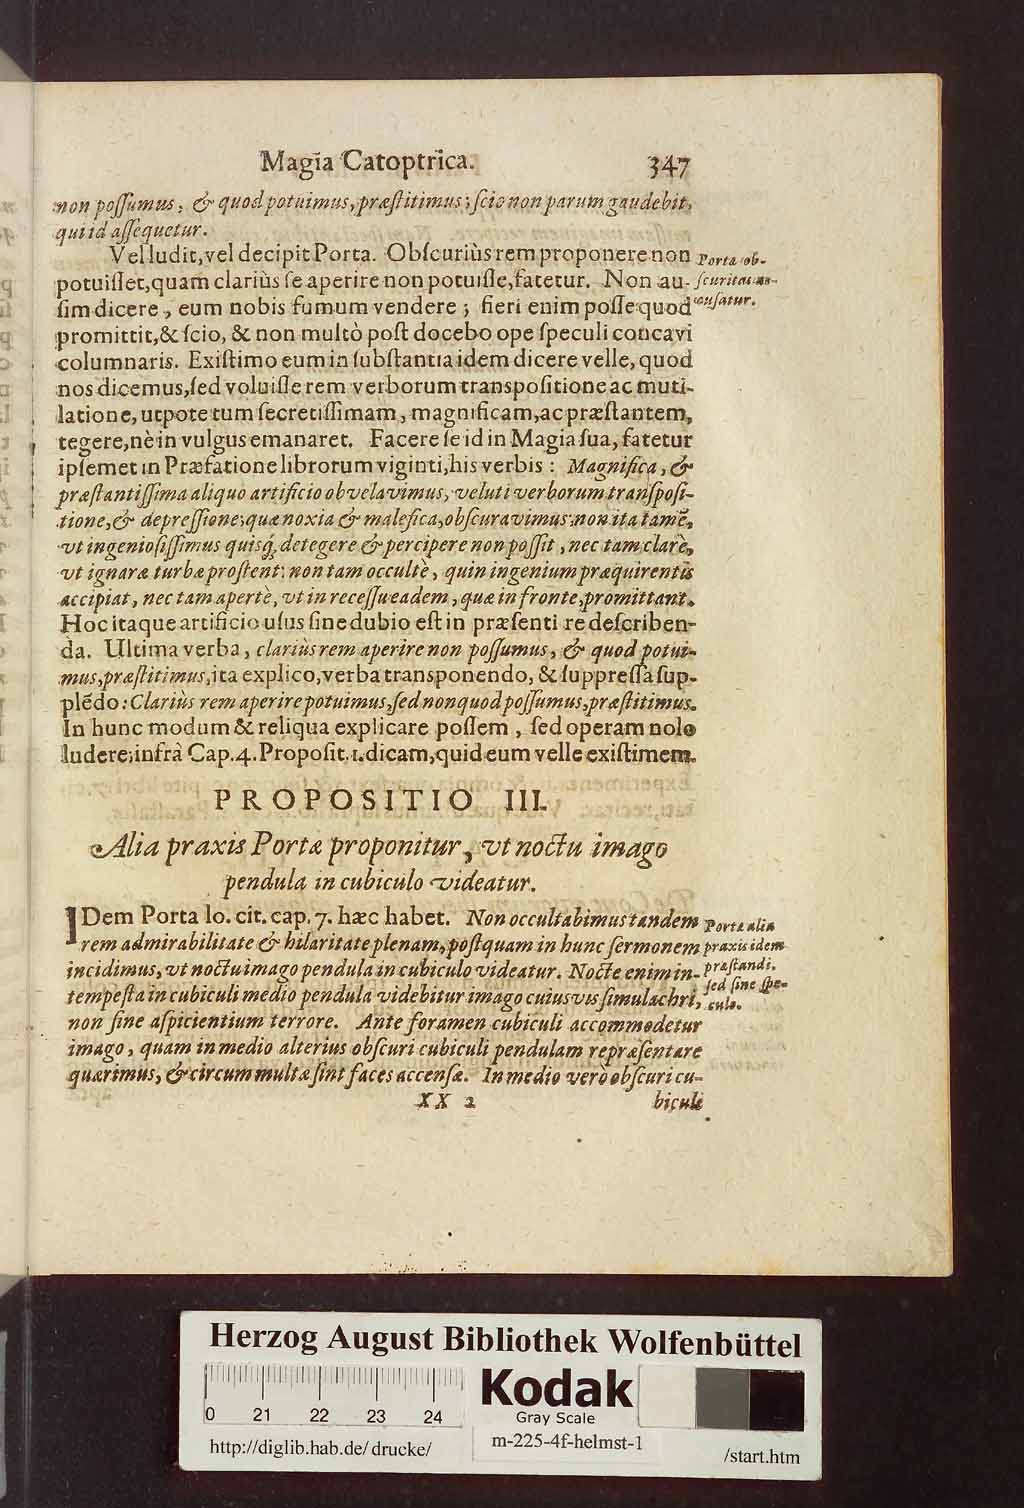 Magia Catoptrica. 347
non poſſumus, & quod potuimus, præſtitimus; ſcio non parum gaudebit,
qui id aſſequetur.
Vel ludit, vel decipit Porta. Obſcuriùs rem proponere non
potuiſſet, quam clariùs ſe aperire non potuiſſe, fatetur. Non au-
ſim dicere, eum nobis fumum vendere; fieri enim poſſe quod
promittit, & ſcio, & non multò poſt docebo ope ſpeculi concavi
columnaris. Exiſtimo eum in ſubſtantia idem dicere velle, quod
nos dicemus, ſed voluiſſe rem verborum transpoſitione ac muti-
latione, utpote tum ſecretiſſimam, magnificam, ac præſtantem,
tegere, nè in vulgus emanaret. Facere ſe id in Magia ſua, fatetur
ipſemet in Præfatione librorum viginti, his verbis: Magnifica, &
præſtantiſſima aliquo artificio obvelavimus, veluti verborum tranſpoſi-
tione, & depreſſione; quæ noxia & malefica, obſcuravimus; non ita tamẽ,
vt ingenioſiſſimus quisq́; detegere & percipere non poſſit, nec tam clarè,
vt ignaræ turbæ proſtent: non tam occultè, quin ingenium præquirentis
accipiat, nec tam apertè, vt in receſſu eadem, quæ in fronte, promittant.
Hoc itaque artificio uſus ſine dubio eſt in præſenti re deſcriben-
da. Ultima verba, clariùs rem aperire non poſſumus, & quod potui-
mus, præſtitimus, ita explico, verba transponendo, & ſuppreſſa ſup-
plẽdo: Clariùs rem aperire potuimus, ſed non quod poſſumus, præſtitimus.
In hunc modum & reliqua explicare poſſem, ſed operam nolo
ludere; infrà Cap. 4. Propoſit. 1. dicam, quid eum velle exiſtimem.
Porta ob-
ſcuritas ac-
cuſatur.
PROPOSITIO III.
Alia praxis Portæ proponitur, vt noctu imago
pendula in cubiculo videatur.
IDem Porta lo. cit. cap. 7. hæc habet. Non occultabimus tandem
rem admirabilitate & hilaritate plenam, poſtquam in hunc ſermonem
incidimus, vt noctu imago pendula in cubiculo videatur. Nocte enim in-
tempeſta in cubiculi medio pendula videbitur imago cuiusvis ſimulachri,
non ſine aſpicientium terrore. Ante foramen cubiculi accommodetur
imago, quam in medio alterius obſcuri cubiculi pendulam repræſentare
quærimus, & circum multæ ſint faces accenſæ. In medio verò obſcuri cu-
Porta alia
praxis idem
præſtandi,
ſed ſine ſpe-
culo.
XX 2 biculi
Herzog August Bibliothek Wolfenbüttel
0 21 22 23 24
Kodak
Gray Scale
http://diglib.hab.de/drucke/
m-225-4f-helmst-1
/start.htm